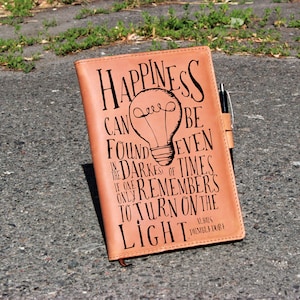 HAPPINESS
CAN BE
FOUND EVEN
IN THE DARKEST OF TIMES
IF ONE ONLY REMEMBERS
TO TURN ON THE
LIGHT ALBUS
DUMBLEDORE